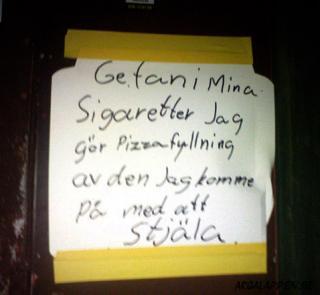 Ge.fan i Mina
Sigaretter Jag
gör Pizzafyllning
av den Jag komme
På med att
Stjäla.
ARGALAPPEN.SE